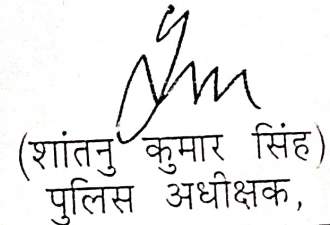 (शांतनु कुमार सिंह)
पुलिस अधीक्षक,